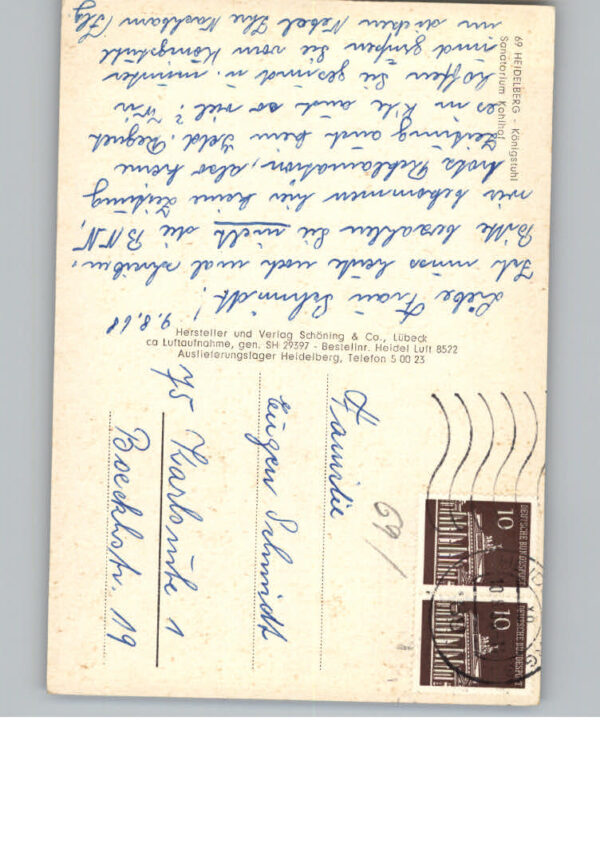 69 HEIDELBERG - Königstuhl
Sanatorium Kohlhof
9.8.68
Liebe Frau Schmidt!
Ich muss heute noch mal schreiben.
Bitte bezahlen Sie nicht die BNN,
wir bekommen hier keine Zeitung
trotz Reklamation, also keine
Zeitung auch kein Geld. Regnet
es in K'he auch so viel? Wir
hoffen Sie gesund u. munter
und grüßen Sie vom Königstuhl
im dicken Nebel Ihre Nachbarn
Hersteller und Verlag Schöning & Co., Lübeck
ca Luftaufnahme, gen. SH 29397 - Bestellnr. Heidel Luft 8522
Auslieferungslager Heidelberg, Telefon 5 00 23
69/
10
DEUTSCHE BUNDESPOST
10
DEUTSCHE BUNDESPOST
Familie
Eugen Schmidt
75 Karlsruhe 1
Boeckhstr. 19